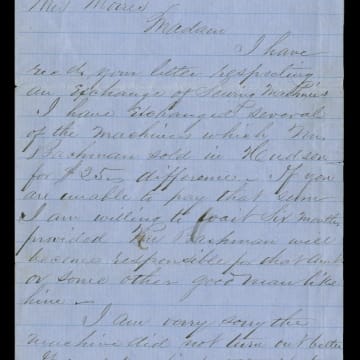 Mrs Morris
Madam
I have
recd. your letter respecting
an Exchange of Sewing Machines
I have Exchanged several
of the Machines which Mr.
Bachman sold in Hudson
for $25. difference. If you
are unable to pay that sum
I am willing to wait Six Months
provided Mr Bachman will
become responsible for that amt.
or some other good man like
him –
I am very sorry the
Machine did not turn out better